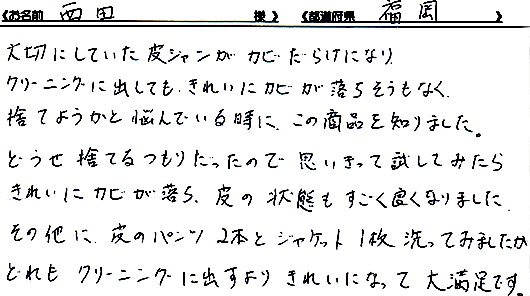 《お名前 西田 様》 《都道府県 福岡 》
大切にしていた皮ジャンが カビだらけになり
クリーニングに出しても、きれいにカビが落ちそうもなく、
捨てようかと悩んでいる時に、この商品を知りました。
どうせ捨てるつもりだったので 思いきって試してみたら
きれいにカビが落ち、皮の状態もすごく良くなりました
その他に、皮のパンツ 2本とジャケット 1枚 洗ってみましたが
どれも クリーニングに出すより きれいになって 大満足です。